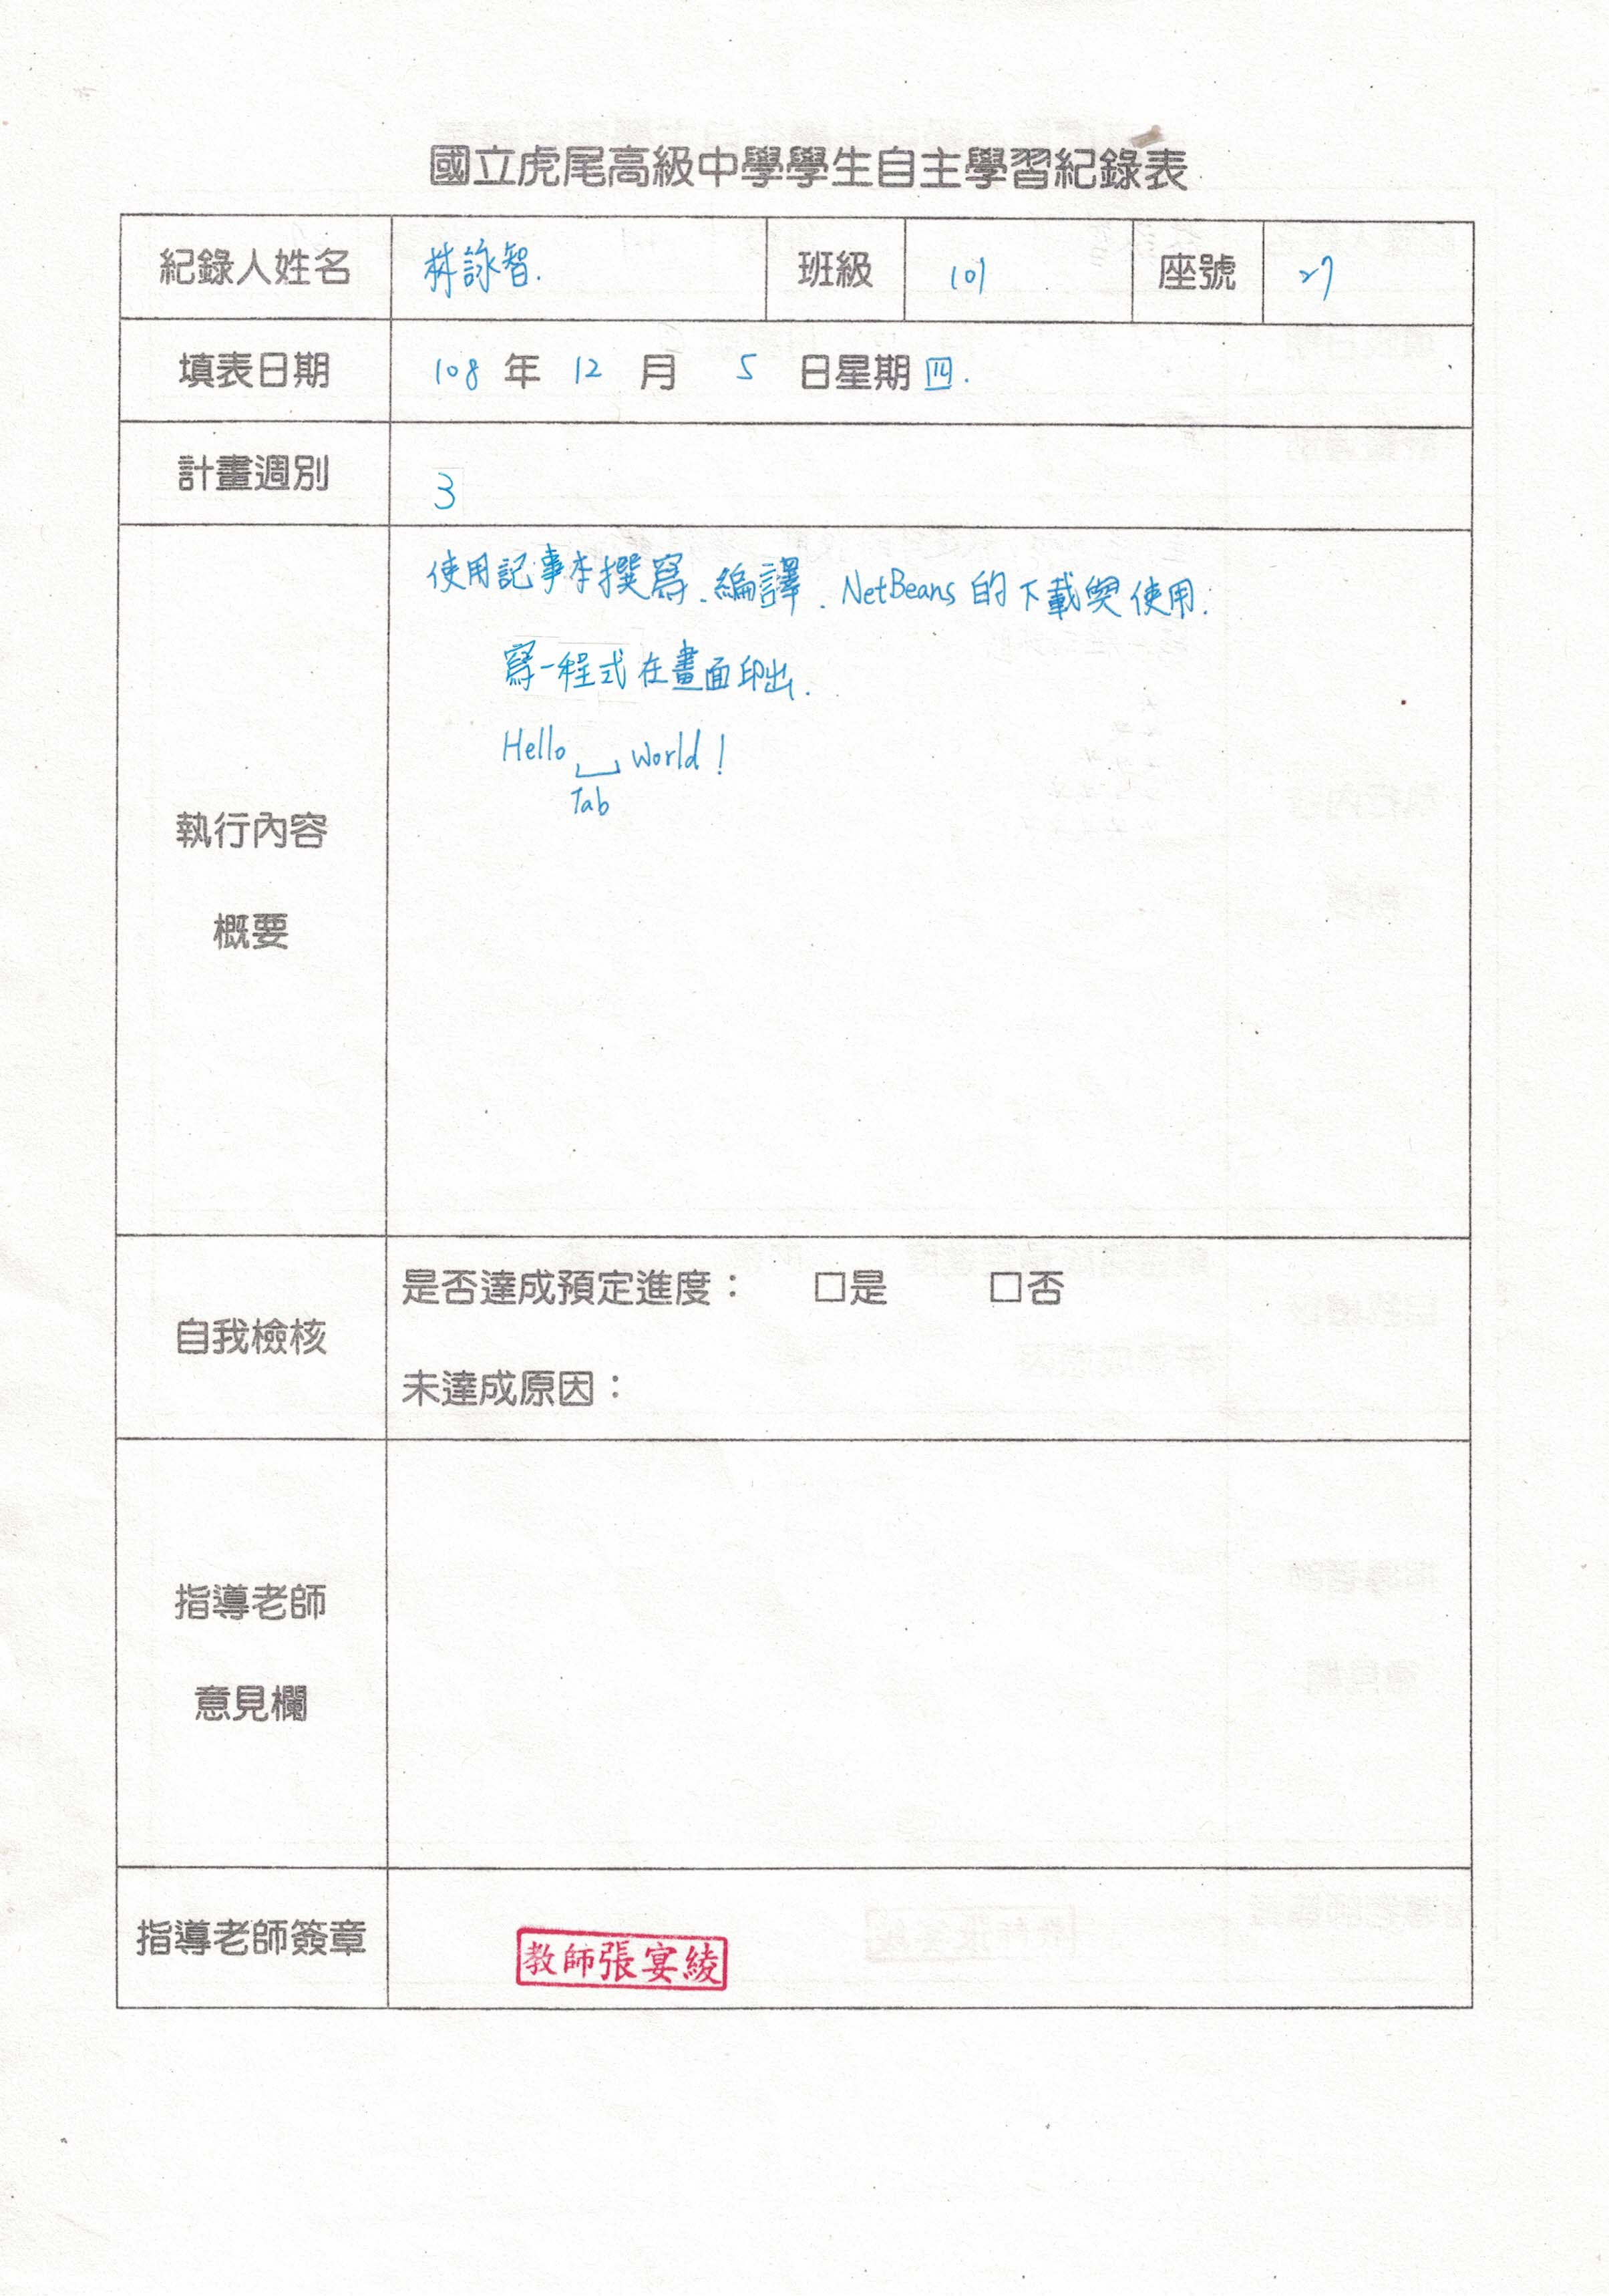 國立虎尾高級中學學生自主學習紀錄表
紀錄人姓名 林詠智. 班級 101 座號 27
填表日期 108 年 12 月 5 日星期四.
計畫週別 3
使用記事本撰寫、編譯、NetBeans 的下載與使用.
寫一程式在畫面印出.
Hello World!
Tab
執行內容
概要
是否達成預定進度： □是 □否
自我檢核
未達成原因：
指導老師
意見欄
指導老師簽章 教師張宴綾